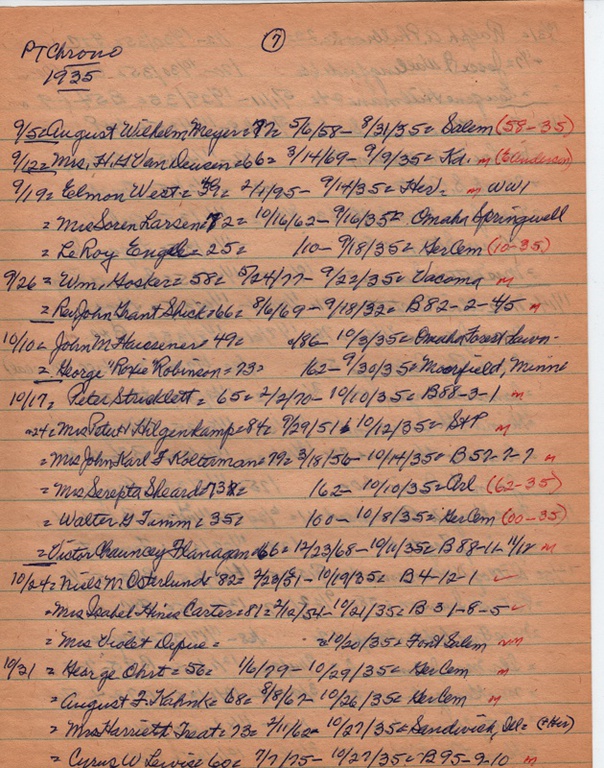 ⑦
PT Chrono
1935
9/5 = August Wilhelm Meyer = 77 = 5/6/58 - 8/31/35 = Salem (58-35)
9/12 = Mrs. H.H Van Deusen = 66 = 3/14/69 - 9/9/35 = Kd. m (Henderson)
9/19 = Elmon West = 39 = 2/1/95 - 9/14/35 = Her = m WW1
= Mrs Soren Larsen = 72 = 10/16/62 - 9/16/35 = Omaha Springwell
= LeRoy Engel = 25 = 10 - 9/18/35 = Ger Cem (10-35)
9/26 = Wm. Hosker = 58 = 5/24/77 - 9/22/35 = Tacoma m
= Rev John Grant Shick = 66 = 8/6/69 - 9/18/32 = B82-2-4/5 m
10/10 = John M = 49 = /86 - 10/3/35 = Omaha Forest Lawn -
= George "Roxie" Robinson = 73 = /62 - 9/30/35 = Moorfield, Minne
10/17 = Peter Stricklett = 65 = 2/2/70 - 10/10/35 = B88-3-1 m
24 = Mrs Peter H Hilgenkamp = 84 = 9/29/51 = 10/12/35 = StP m
= Mrs John Karl F Kolterman = 79 = 3/18/56 - 10/14/35 = B57-7-7 m
= Mrs Serepta Sheard = 73 = /62 - 10/10/35 = Arl (62-35)
= Walter G Timm = 35 = /00 - 10/8/35 = Ger Cem (00-35)
= Victor Chauncey Flanagen = 66 = 12/23/68 - 10/11/35 = B88-11-11/12 m
10/24 = Niels M Osterlund = 82 = - 10/19/35 = B4-12-1 ✓
= Mrs Isabel Hines Carter = 81 = 2/12/54 - 10/21/35 = B31-8-5 ✓
= Mrs Violet Depue = = 10/20/35 = Font Salem nm
10/31 = George Ohrt = 56 = 1/6/79 - 10/29/35 = Ger Cem m
= August F Kahnk = 68 = 8/8/67 - 10/26/35 = Ger Cem m
= Mrs Harriett Treat = 73 = 2/11/62 - 10/27/35 = Sandwich, Ill =
= Cyrus W Lewis = 60 = 7/7/75 - 10/27/35 = B95-9-10 m